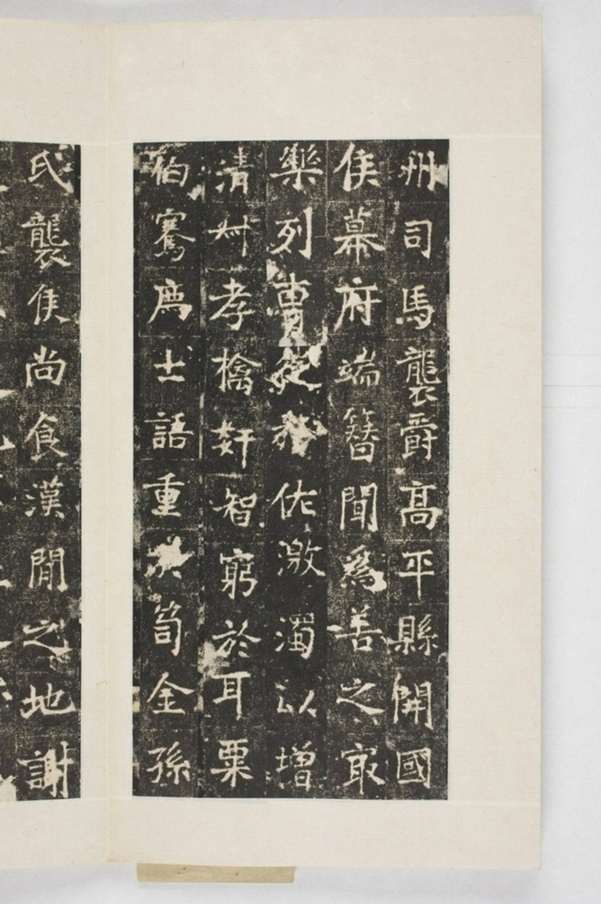 州司馬襲爵高平縣開國
侯幕府端簪聞爲善之冣
樂列曹佐激濁以增
清孝擒奸智窮於耳粟
伯騫廌士語重荀金孫
氏襲侯尚食漢閒之地謝